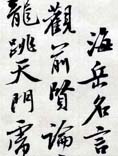 海岳名言
觀前賢論
龍跳天門虎